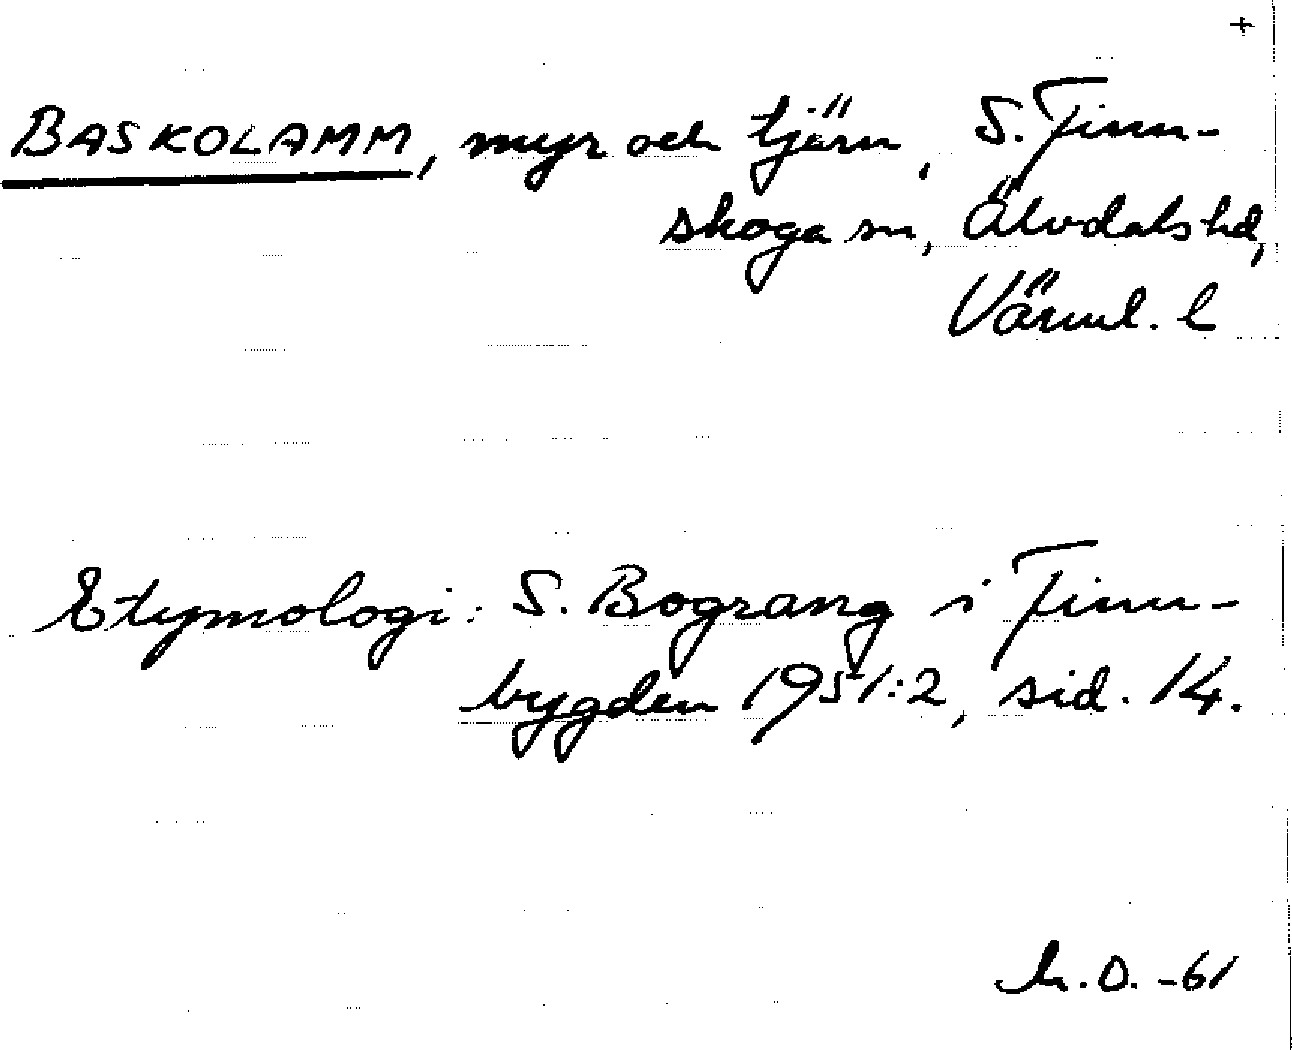 +
BASKOLAMM, myr och tjärn, S. Finn-
skoga sn, Älvdals hd,
Värml. l
Etymologi: S. Bograng i Finn-
bygden 1951:2, sid. 14.
-61